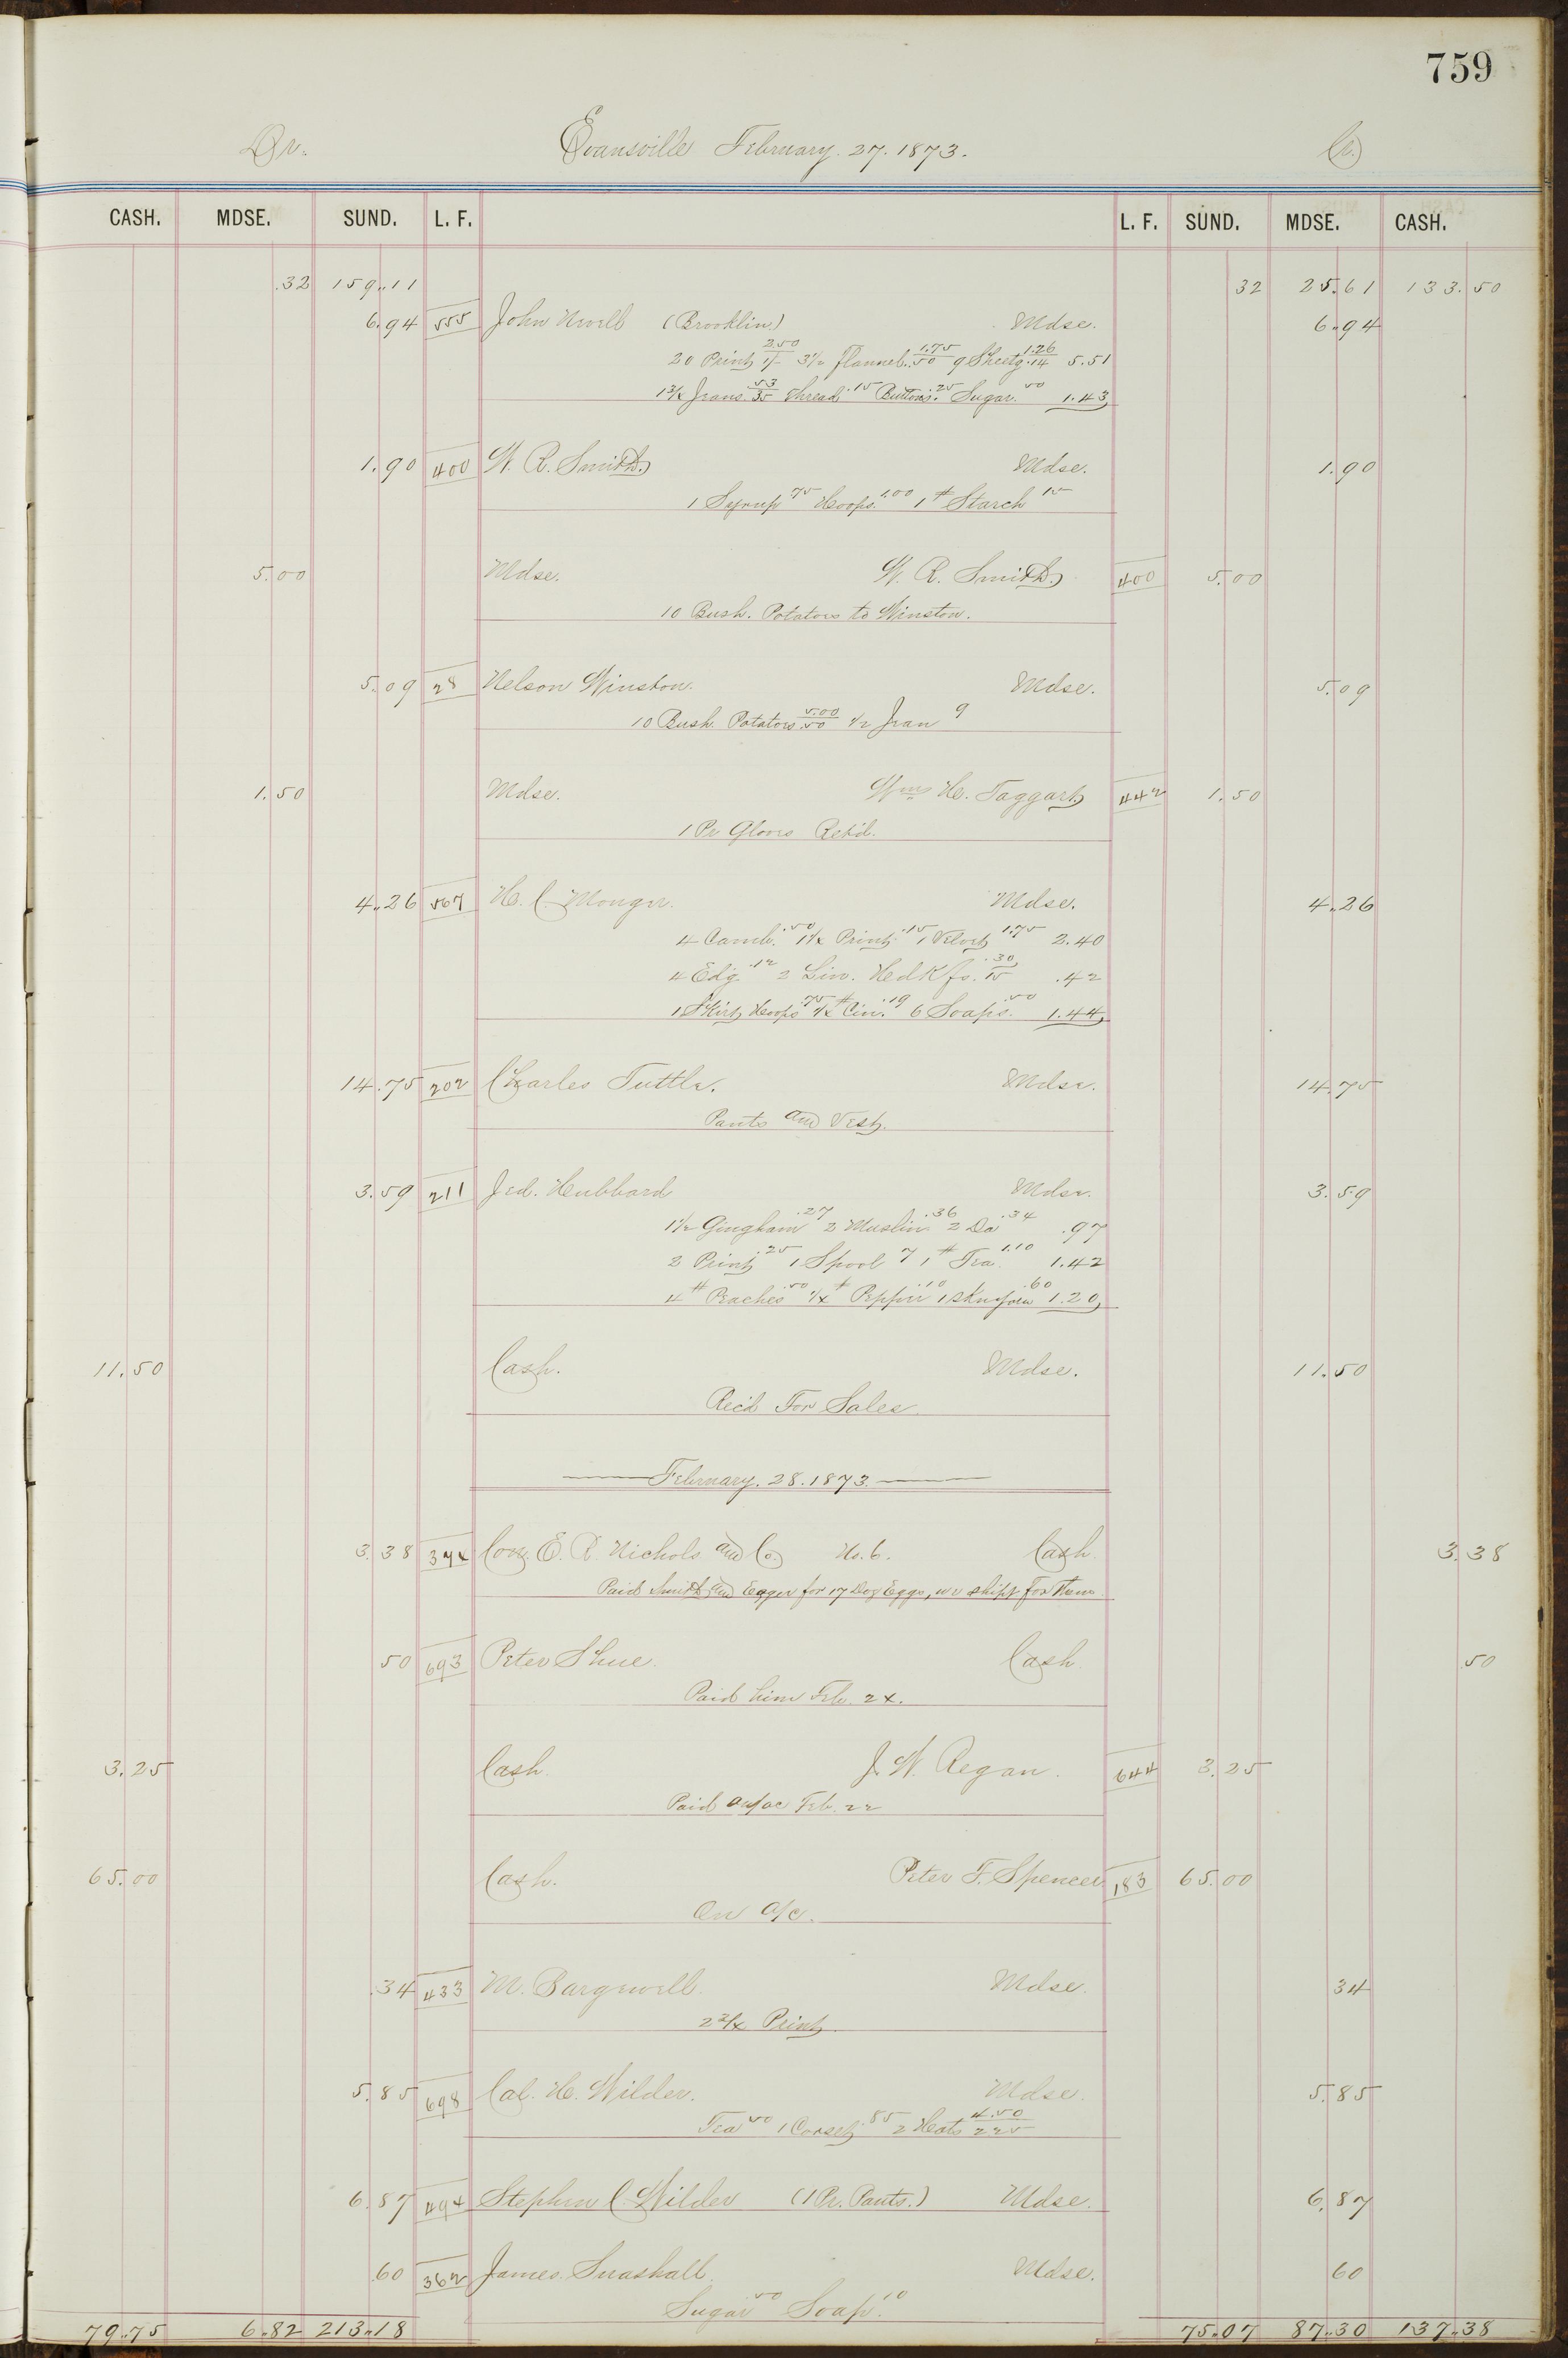 759
Dr. Evansville February. 27. 1873. Cr.
CASH. MDSE. SUND. L. F. L. F. SUND. MDSE. CASH.
.32 159.11 32 25.61 133.50
6.94 555 John (Brooklin) Mdse. 6.94
20 Print 2.50 1/- 3½ Flannel. 1.75 50 9 Sheetg 1.26 .14 5.51
Jeans .53 35 Thread .15 Buttons .25 Sugar. 50 1.43
1.90 400 W. R. Smith. Mdse. 1.90
1 Syrup 75 Hoops. 1.00 1 # Starch 15
5.00 Mdse. W. R. Smith. 400 5.00
10 Bush. Potatoes to Winston.
5.09 28 Nelson Winston. Mdse. 5.09
10 Bush. Potatoes 5.00 .50 ½ Jean 9
1.50 Mdse. Wm H. Taggart 442 1.50
1 Pr Gloves Ret'd.
4.26 567 H. C. Monger. Mdse. 4.26
4 Camb. .50 1¼ Print .15 1 Velvet 1.75 2.40
4 Edg. .12 2 Lin. Hedkfs. .30 15 .42
1 Skirt Hoops .75 ¼ # Cin. .19 6 Soaps. .50 1.44
14.75 202 Charles Tuttle. Mdse. 14.75
Pants and Vest.
3.59 211 Jed. Hubbard Mdse. 3.59
1½ Gingham .27 2 Muslin .36 2 Do .34 .97
2 Print .25 1 Spool 7 1 # Tea 1.10 1.42
4 # Peaches .50 ¼ # Pepper .10 1 .60 1.20
11.50 Cash. Mdse. 11.50
Rec'd For Sales
February. 28. 1873.
3.38 374 Con. E. R. Nichols and Co. No. 6. Cash. 3.38
Paid Smith and Eager for 17 Doz Eggs, we shipt For Them
50 693 Peter Shue. Cash .50
Paid him Feb. 24.
3.25 Cash. J. W. Regan. 644 3.25
Paid on/ac Feb. 22
65.00 Cash. Peter F. Spencer 183 65.00
On a/c.
.34 433 M. Bargewell. Mdse. 34
2¾ Print
5.85 698 Cal. H. Wilder. Mdse. 5.85
Tea 50 1 Corset .85 2 Hats 4.50 225
6.87 494 Stephen C. Wilder (1 Pr. Pants.) Mdse. 6.87
60 362 James Snashall. Mdse. 60
Sugar 50 Soap. 10
79.75 6.82 213.18 75.07 87.30 137.38